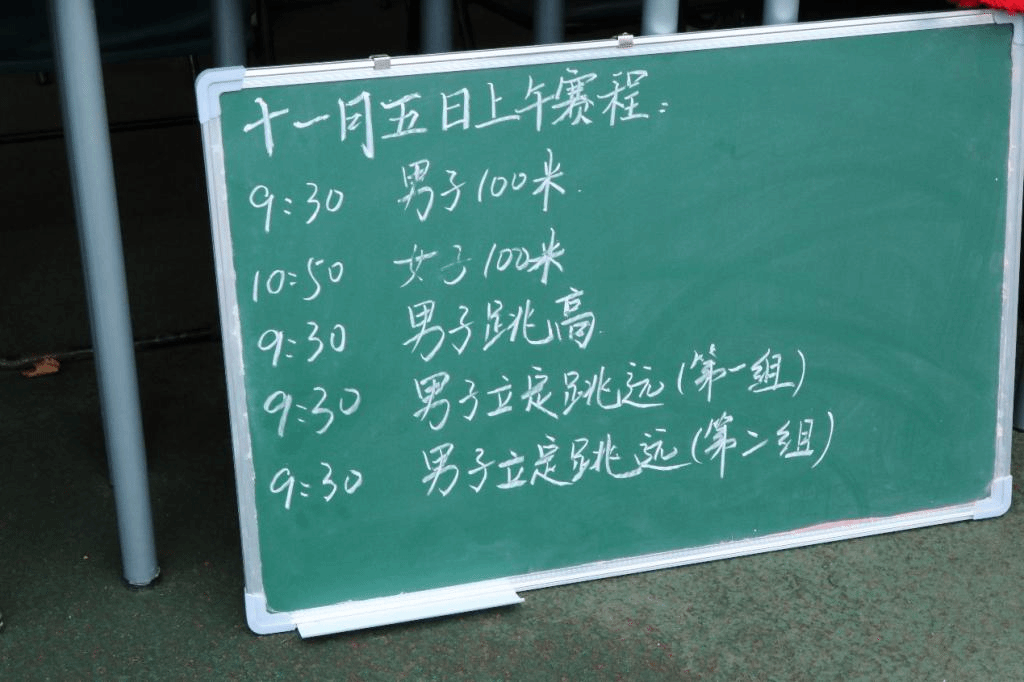 十一月五日上午赛程:
9:30 男子100米.
10:50 女子100米
9:30 男子跳高.
9:30 男子立定跳远(第一组)
9:30 男子立定跳远(第二组)